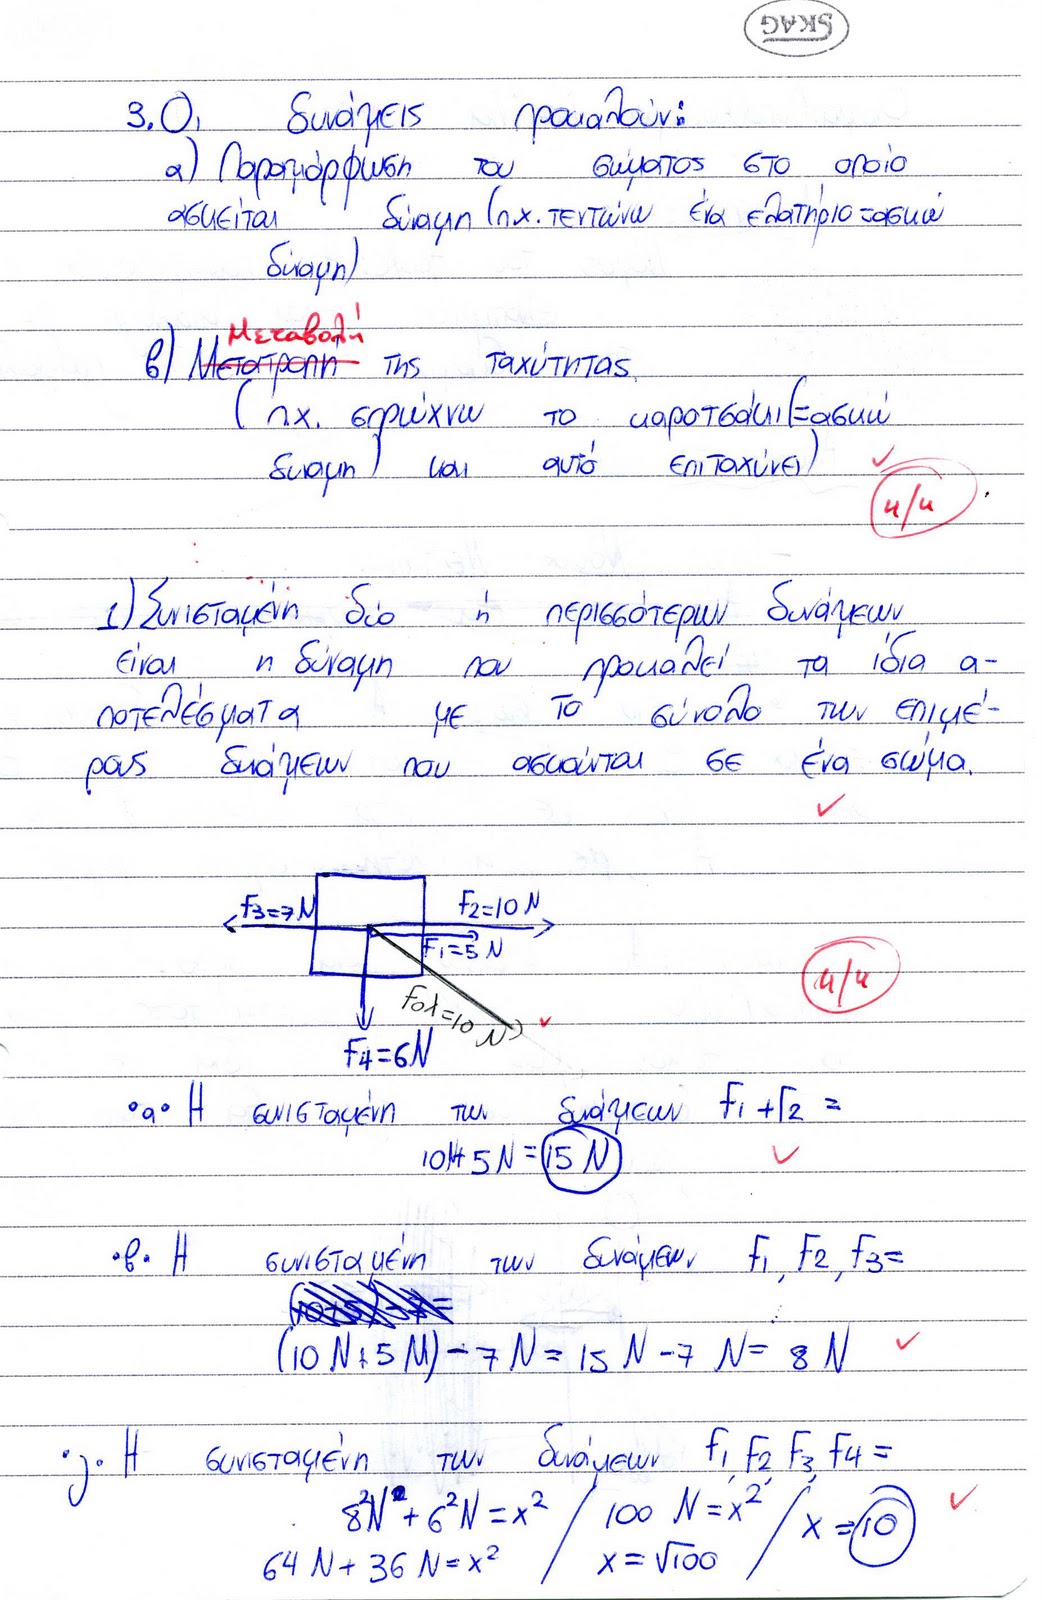 SKAG
3. Οι δυνάμεις προκαλούν:
α) Παραμόρφωση του σώματος στο οποίο
ασκείται δύναμη (πχ. τεντώνω ένα ελατήριο = ασκώ
δύναμη)
Μεταβολή
β) Μετατροπή της ταχύτητας
(πχ. σπρώχνω το καροτσάκι (=ασκώ
δύναμη) και αυτό επιταχύνει)
4/4
1) Συνισταμένη δύο ή περισσότερων δυνάμεων
είναι η δύναμη που προκαλεί τα ίδια α-
ποτελέσματα με το σύνολο των επιμέ-
ρους δυνάμεων που ασκούνται σε ένα σώμα.
F3=7N F2=10N
F1=5N
Fολ=10N
F4=6N
4/4
·α· Η συνισταμένη των δυνάμεων F1+F2=
10N+5N=15N
·β· Η συνισταμένη των δυνάμεων F1, F2, F3=
(10N+5N)-7N=15N-7N=8N
·γ· Η συνισταμένη των δυνάμεων F1, F2, F3, F4=
8²N²+6²N=x² / 100 N=x² / x=10
64N+36N=x² / x=√100 /